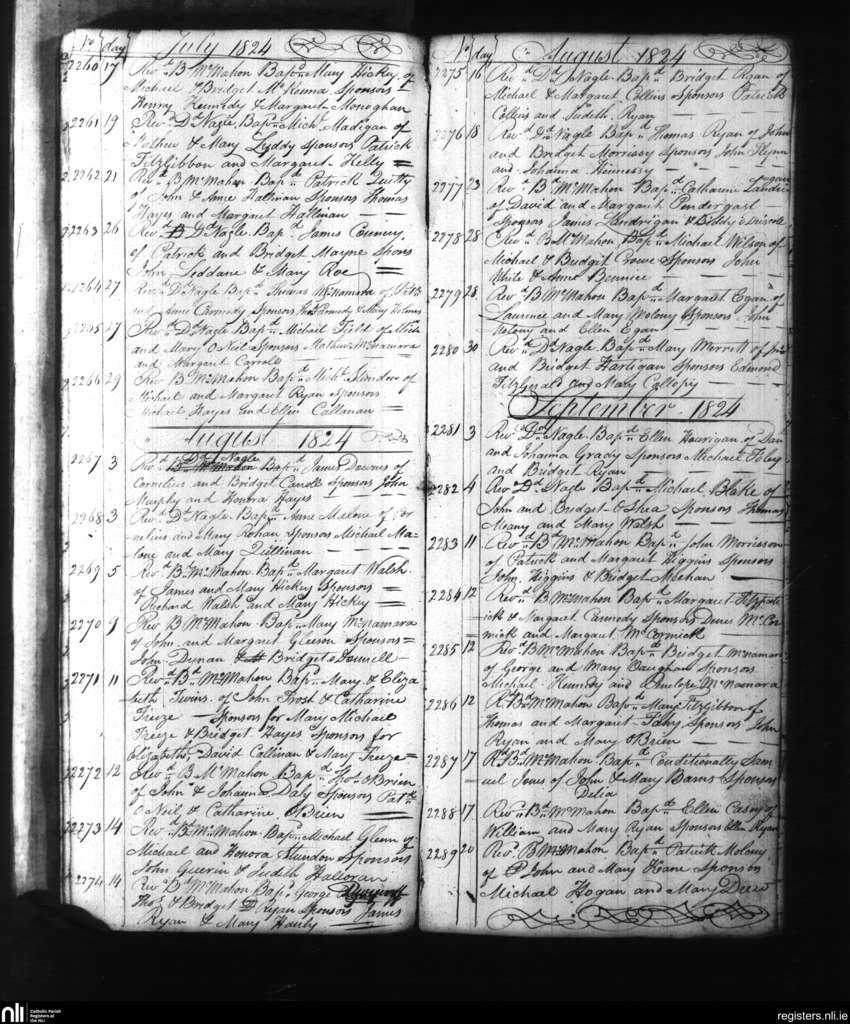 No day July 1824
2260 17 Revd. B McMahon Bapd. Mary Hickey of
Michael & Bridget McKenna Sponsors
Henry Kennedy & Margaret Monoghan
2261 19 Revd. Dl Nagle Bapd. Michl. Madigan of
Mathew & Mary Liddy Sponsors Patrick
Fitzgibbon and Margaret Kelly
2262 21 Revd. B McMahon Bapd. Patrick Quilty
of John & Anne Hallinan Sponsors Thomas
Hayes and Margaret Hallinan
2263 26 Revd. Dl Nagle Bapd. James
of Patrick and Bridget Mayne Spons
John Leddane & Mary Roe
2264 27 Revd. Dl Nagle Bapd. Thomas McNamara of
and Anne Sponsors Thos & Mary Holmes
2265 27 Revd. Dl Nagle Bapd. Michael Field of Mich
and Mary O Neil Sponsors Mathew McNamara
and Margaret Carroll
2266 29 Rev B McMahon Bapd. Michl. of
Michael and Margaret Ryan Sponsors
Michael Hayes and Ellen Callanan
August 1824
2267 3 Revd. Dl Nagle Bapd. James Downes of
Cornelius and Bridget Carroll Sponsors John
Murphy and Honora Hayes
2268 3 Revd. Dl Nagle Bapd. Anne Malone of Cor
nelius and Mary Kohan Sponsors Michael Ma=
lone and Mary Quillinan
2269 5 Revd. B McMahon Bapd. Margaret Walsh
of James and Mary Hickey Sponsors
Richard Walsh and Mary Hickey
2270 9 Rev B McMahon Bapd. Mary McNamara
of John and Margaret Gleeson Sponsors
John Dynan & Bridget
2271 11 Revd. B McMahon Bapd. Mary & Eliza
beth Twins of John Frost & Catharine
Freeze Sponsors for Mary Michael
Freeze & Bridget Hayes Sponsors for
Elizabeth, David Callinan & Mary Freeze
2272 12 Revd. B McMahon Bapd. Thos. O Brien
of John & Johanna Daly Sponsors Patk.
O Neil & Catharine O Brien
2273 14 Revd. B McMahon Bapd. Michael Glenn of
Michael and Honora Sponsors
John Guerin & Judith Halloran
2274 14 Revd. B McMahon Bapd. George
Thos. & Bridget Ryan Sponsors James
Ryan & Mary Hanly
No day August 1824
2275 16 Revd. Dl Nagle Bapd. Bridget Ryan of
Michael & Margaret Collins Sponsors Patrick
Collins and Judith Ryan
2276 18 Revd. Dl Nagle Bapd. Thomas Ryan of John
and Bridget Morrissy Sponsors John Flynn
and Johanna Hennessy
2277 23 Revd. B McMahon Bapd. Catharine Landri
gan
of David and Margaret Pendergast
Sponsors James Landrigan & Biddy Driscole
2278 28 Revd. B McMahon Bapd. Michael Wilson of
Michael & Bridget Crowe Sponsors John
White & Anne
2279 28 Revd. B McMahon Bapd. Margaret Egan of
Laurence and Mary Molony Sponsors John
Molony and Ellen Egan
2280 30 Revd. Dl Nagle Bapd. Mary of
and Bridget Hartigan Sponsors Edmond
Fitzgerald and Mary
September 1824
2281 3 Revd. Dl Nagle Bapd. Ellen Hourigan of Dan
and Johanna Grady Sponsors Michael Foley
and Bridget Ryan
2282 4 Revd. Dl Nagle Bapd. Michael Blake of
John and Bridget O Shea Sponsors Thomas
Meany and Mary Walsh
2283 11 Revd. B McMahon Bapd. John Morrisson
of Patrick and Margaret Higgins Sponsors
John Higgins & Bridget Meehan
2284 12 Revd. B McMahon Bapd. Margaret Fitzpatr
ick & Margaret Cannody Sponsors Denis McCor
mick and Margaret McCormick
2285 12 Revd. B McMahon Bapd. Bridget McNamara
of George and Mary Vaughan Sponsors
Michael and Penelope McNamara
2286 12 Rd. B McMahon Bapd. Mary Fitzgibbon of
Thomas and Margaret Fahy Sponsors John
Ryan and Mary O Brien
2287 17 Rd. B McMahon Bapd. Conditionally Sam
uel Jones of John & Mary Barns Sponsor
Delia
2288 17 Revd. B McMahon Bapd. Ellen Casey of
William and Mary Ryan Sponsors Ellen Ryan
2289 20 Revd. B McMahon Bapd. Patrick Molony
of John and Mary Keane Sponsors
Michael Hogan and Mary Drew
nli Catholic Parish
Registers at
the NLI
registers.nli.ie